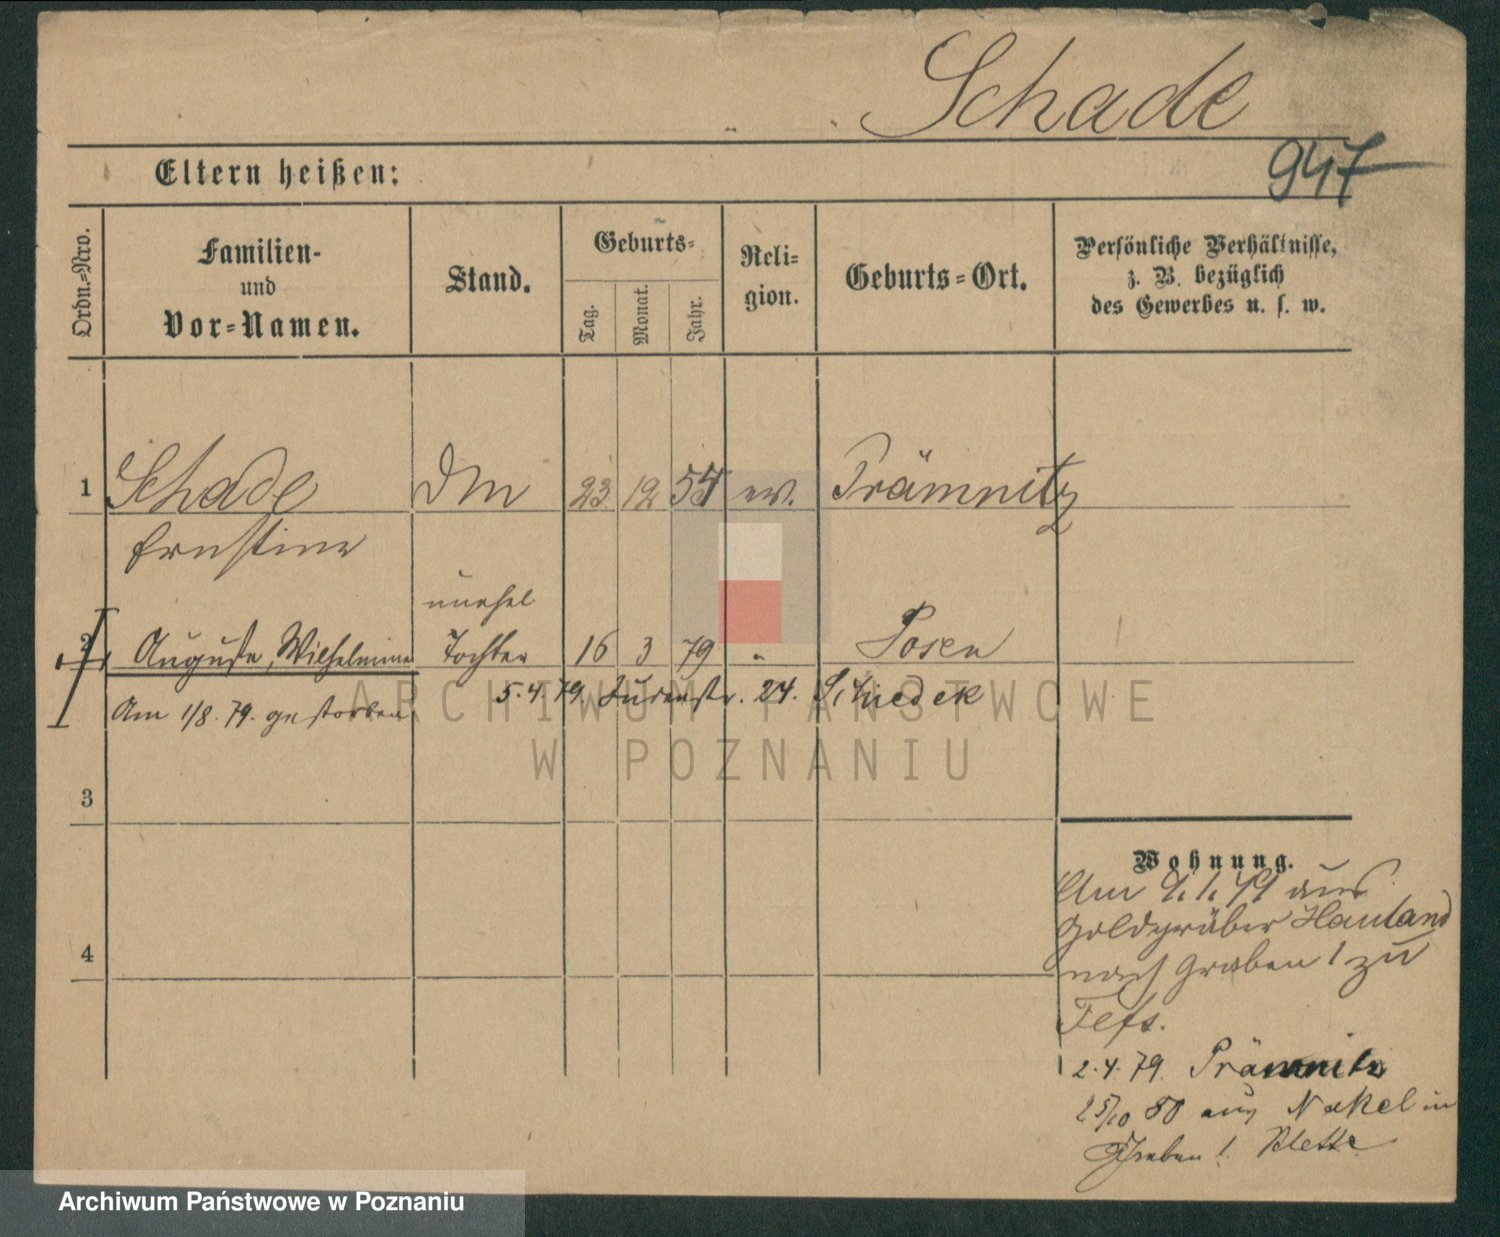 Schade
947
Eltern heißen:
Ordn.-Nro.
Familien-
und
Vor-Namen.
Stand.
Geburts-
Tag.
Monat.
Jahr.
Reli-
gion.
Geburts-Ort.
Persönliche Verhältnisse,
z. B. bezüglich
des Gewerbes u. s. w.
1 Schade 23 12 ev. Prämnitz
Ernstine
unehel
2 Auguste, Wilhelmine Tochter 16 3 79 " Posen
5.4.79. Judenstr. 24. Schiedek
Am 1/8. 79. gestorben
3
4
Wohnung.
Am 9. 1. 79 aus
Goldgräber Hauland
nach Graben 1 zu
2.4.79. Prämnitz
25/10 80 aus Nakel in
Graben 1. Klette
ARCHIWUM PAŃSTWOWE
W POZNANIU
Archiwum Państwowe w Poznaniu